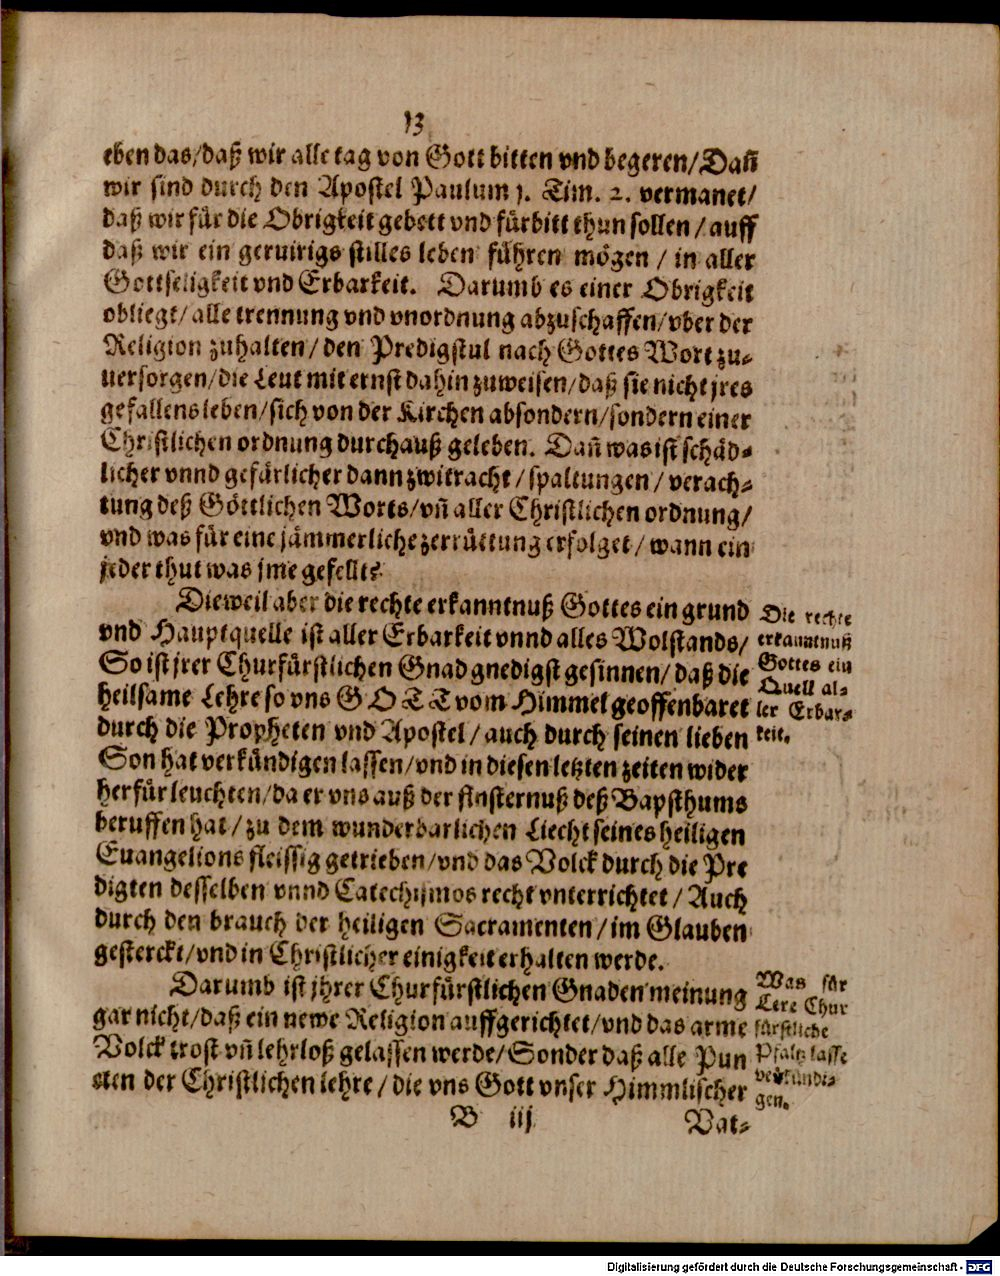 13
eben das/daß wir alle tag von Gott bitten vnd begeren/Dañ
wir sind durch den Apostel Paulum 1. Tim. 2. vermanet/
daß wir für die Obrigkeit gebett vnd fürbitt thun sollen/auff
daß wir ein geruirigs stilles leben führen mögen/in aller
Gottseligkeit vnd Erbarkeit. Darumb es einer Obrigkeit
obliegt/alle trennung vnd vnordnung abzuschaffen/vber der
Religion zuhalten/den Predigstul nach Gottes Wort zu-
uersorgen/die Leut mit ernst dahin zuweisen/daß sie nicht jres
gefallens leben/sich von der Kirchen absondern/sondern einer
Christlichen ordnung durchauß geleben. Dañ was ist schäd-
licher vnnd gefärlicher dann zwitracht/spaltungen/verach-
tung deß Göttlichen Worts/vñ aller Christlichen ordnung/
vnd was für eine jämmerliche zerrüttung erfolget/wann ein
jeder thut was jme gefellt?
Dieweil aber die rechte erkanntnuß Gottes ein grund
vnd Hauptquelle ist aller Erbarkeit vnnd alles Wolstands/
So ist jrer Churfürstlichen Gnad gnedigst gesinnen/daß die
heilsame Lehre so vns GOTT vom Himmel geoffenbaret
durch die Propheten vnd Apostel/auch durch seinen lieben
Son hat verkündigen lassen/vnd in diesen letzten zeiten wider
herfür leuchten/da er vns auß der finsternuß deß Bapsthums
beruffen hat/zu dem wunderbarlichen Liecht seines heiligen
Euangelions fleissig getrieben/vnd das Volck durch die Pre
digten desselben vnnd Catechismos recht vnterrichtet/Auch
durch den brauch der heiligen Sacramenten/im Glauben
gesterckt/vnd in Christlicher einigkeit erhalten werde.
Darumb ist jhrer Churfürstlichen Gnaden meinung
gar nicht/daß ein newe Religion auffgerichtet/vnd das arme
Volck trost vñ lehrloß gelassen werde/Sonder daß alle Pun
cten der Christlichen lehre/die vns Gott vnser Himmlischer
B iij Vat-
Die rechte
erkanntnuß
Gottes ein
Quell al-
ler Erbar-
keit.
Was für
Lere Chur
fürstliche
Pfaltz lasse
verkündi-
gen.
Digitalisierung gefördert durch die Deutsche Forschungsgemeinschaft - DFG